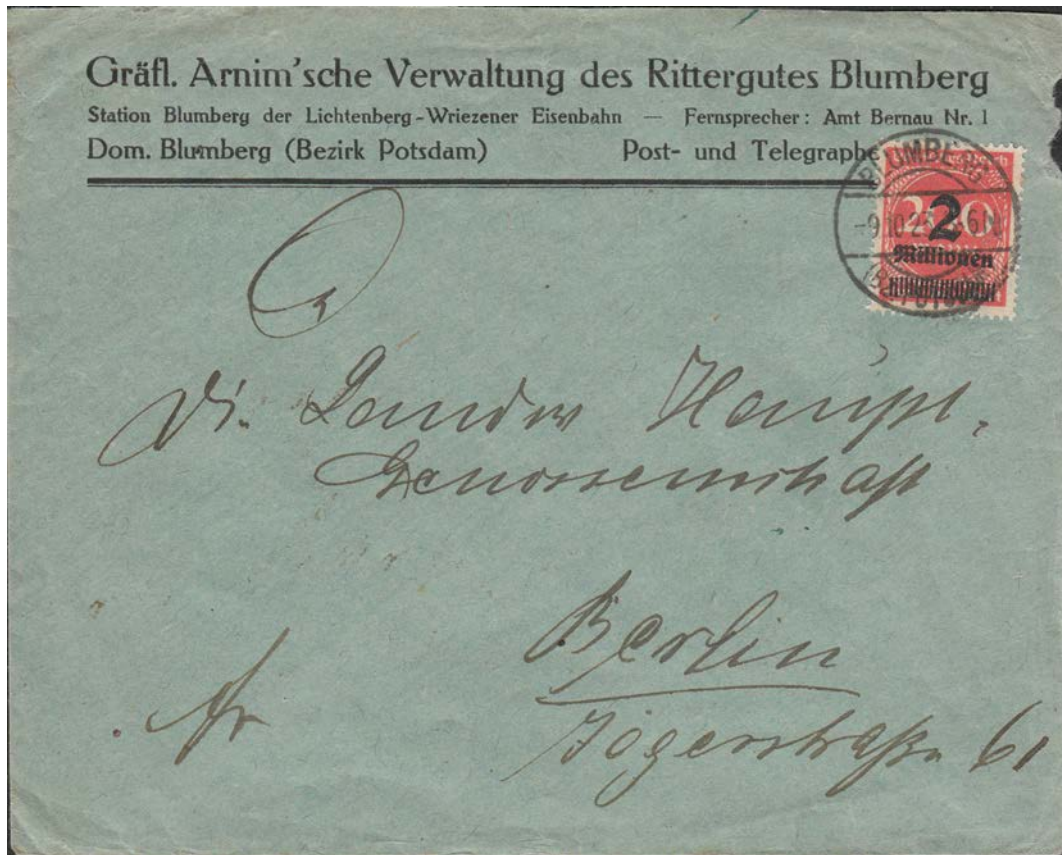 Gräfl. Arnim'sche Verwaltung des Rittergutes Blumberg
Station Blumberg der Lichtenberg-Wriezener Eisenbahn — Fernsprecher: Amt Bernau Nr. 1
Dom. Blumberg (Bezirk Potsdam) Post- und Telegraphe
BLUMBERG
-9.10.23
2
Millionen
Haupt-
Genossenschaft
Berlin
Jägerstraße 61